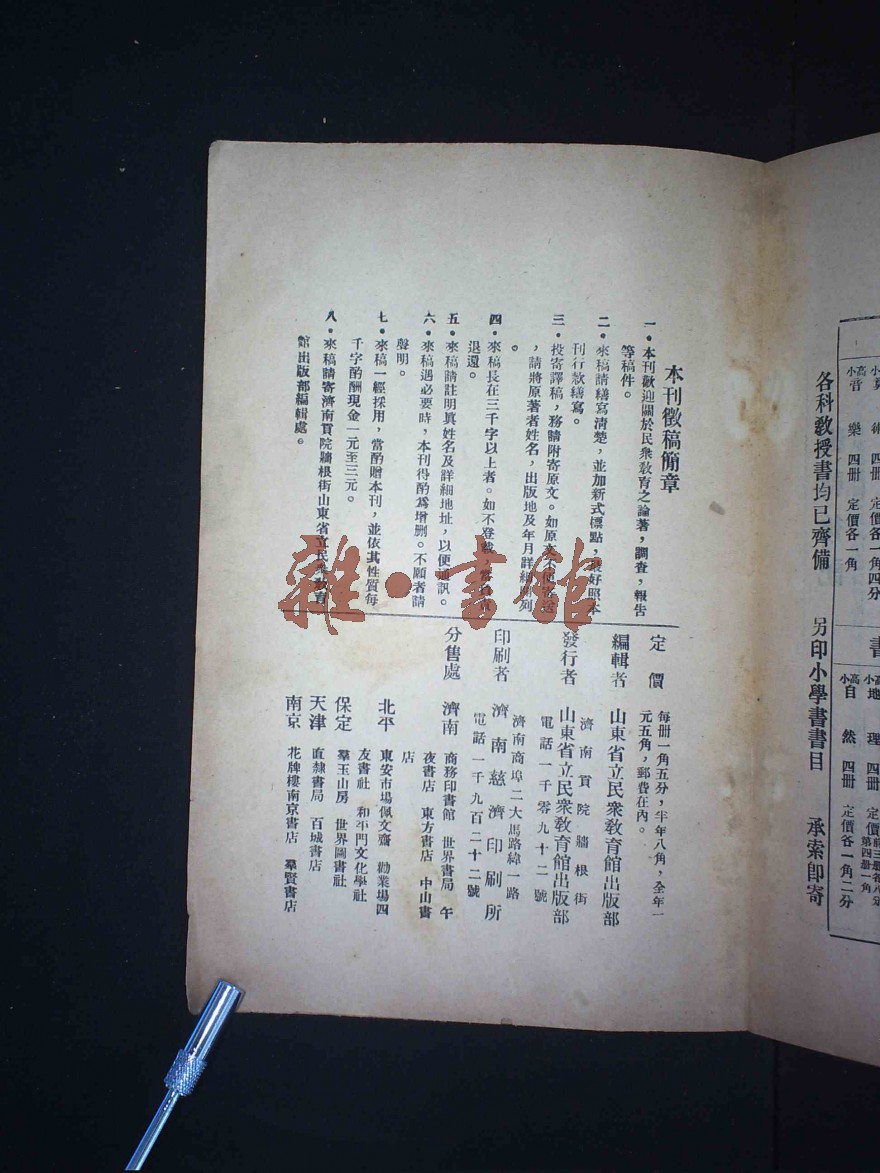 本刊徵稿簡章
一・本刊歡迎關於民衆教育之論著，調查，報告
等稿件。
二・來稿請繕寫清楚，並加新式標點，最好照本
刊行款繕寫。
三・投寄譯稿，務請附寄原文。如原文不便寄送
，請將原著者姓名，出版地及年月詳細開列
。
四・來稿長在三千字以上者。如不登載，
退還。
五・來稿請註明眞姓名及詳細地址，以便通訊。
六・來稿遇必要時，本刊得酌爲增删。不願者請
聲明。
七・來稿一經採用，當酌贈本刊，並依其性質每
千字酌酬現金一元至三元。
八・來稿請寄濟南貢院牆根街山東省立民衆教育
館出版部編輯處。
定價 每册一角五分，半年八角，全年一
元五角，郵費在內。
編輯者 山東省立民衆教育館出版部
濟南貢院牆根街
發行者 山東省立民衆教育館出版部
電話一千零九十二號
濟南商埠二大馬路緯一路
印刷者 濟南慈濟印刷所
電話一千九百二十二號
分售處 濟南 商務印書館 世界書局 午
夜書店 東方書店 中山書
店
北平 東安市場佩文齋 勸業場四
友書社 和平門文化學社
保定 羣玉山房 世界圖書社
天津 直隸書局 百城書店
南京 花牌樓南京書店 羣賢書店
雜・書館
高小算術 四册 定價各一角四分
高小音樂 四册 定價各一角
書
高小地理 四册 定價
第四册一角
高小自然 四册 定價各一角二分
各科教授書均已齊備 另印小學書書目 承索卽寄